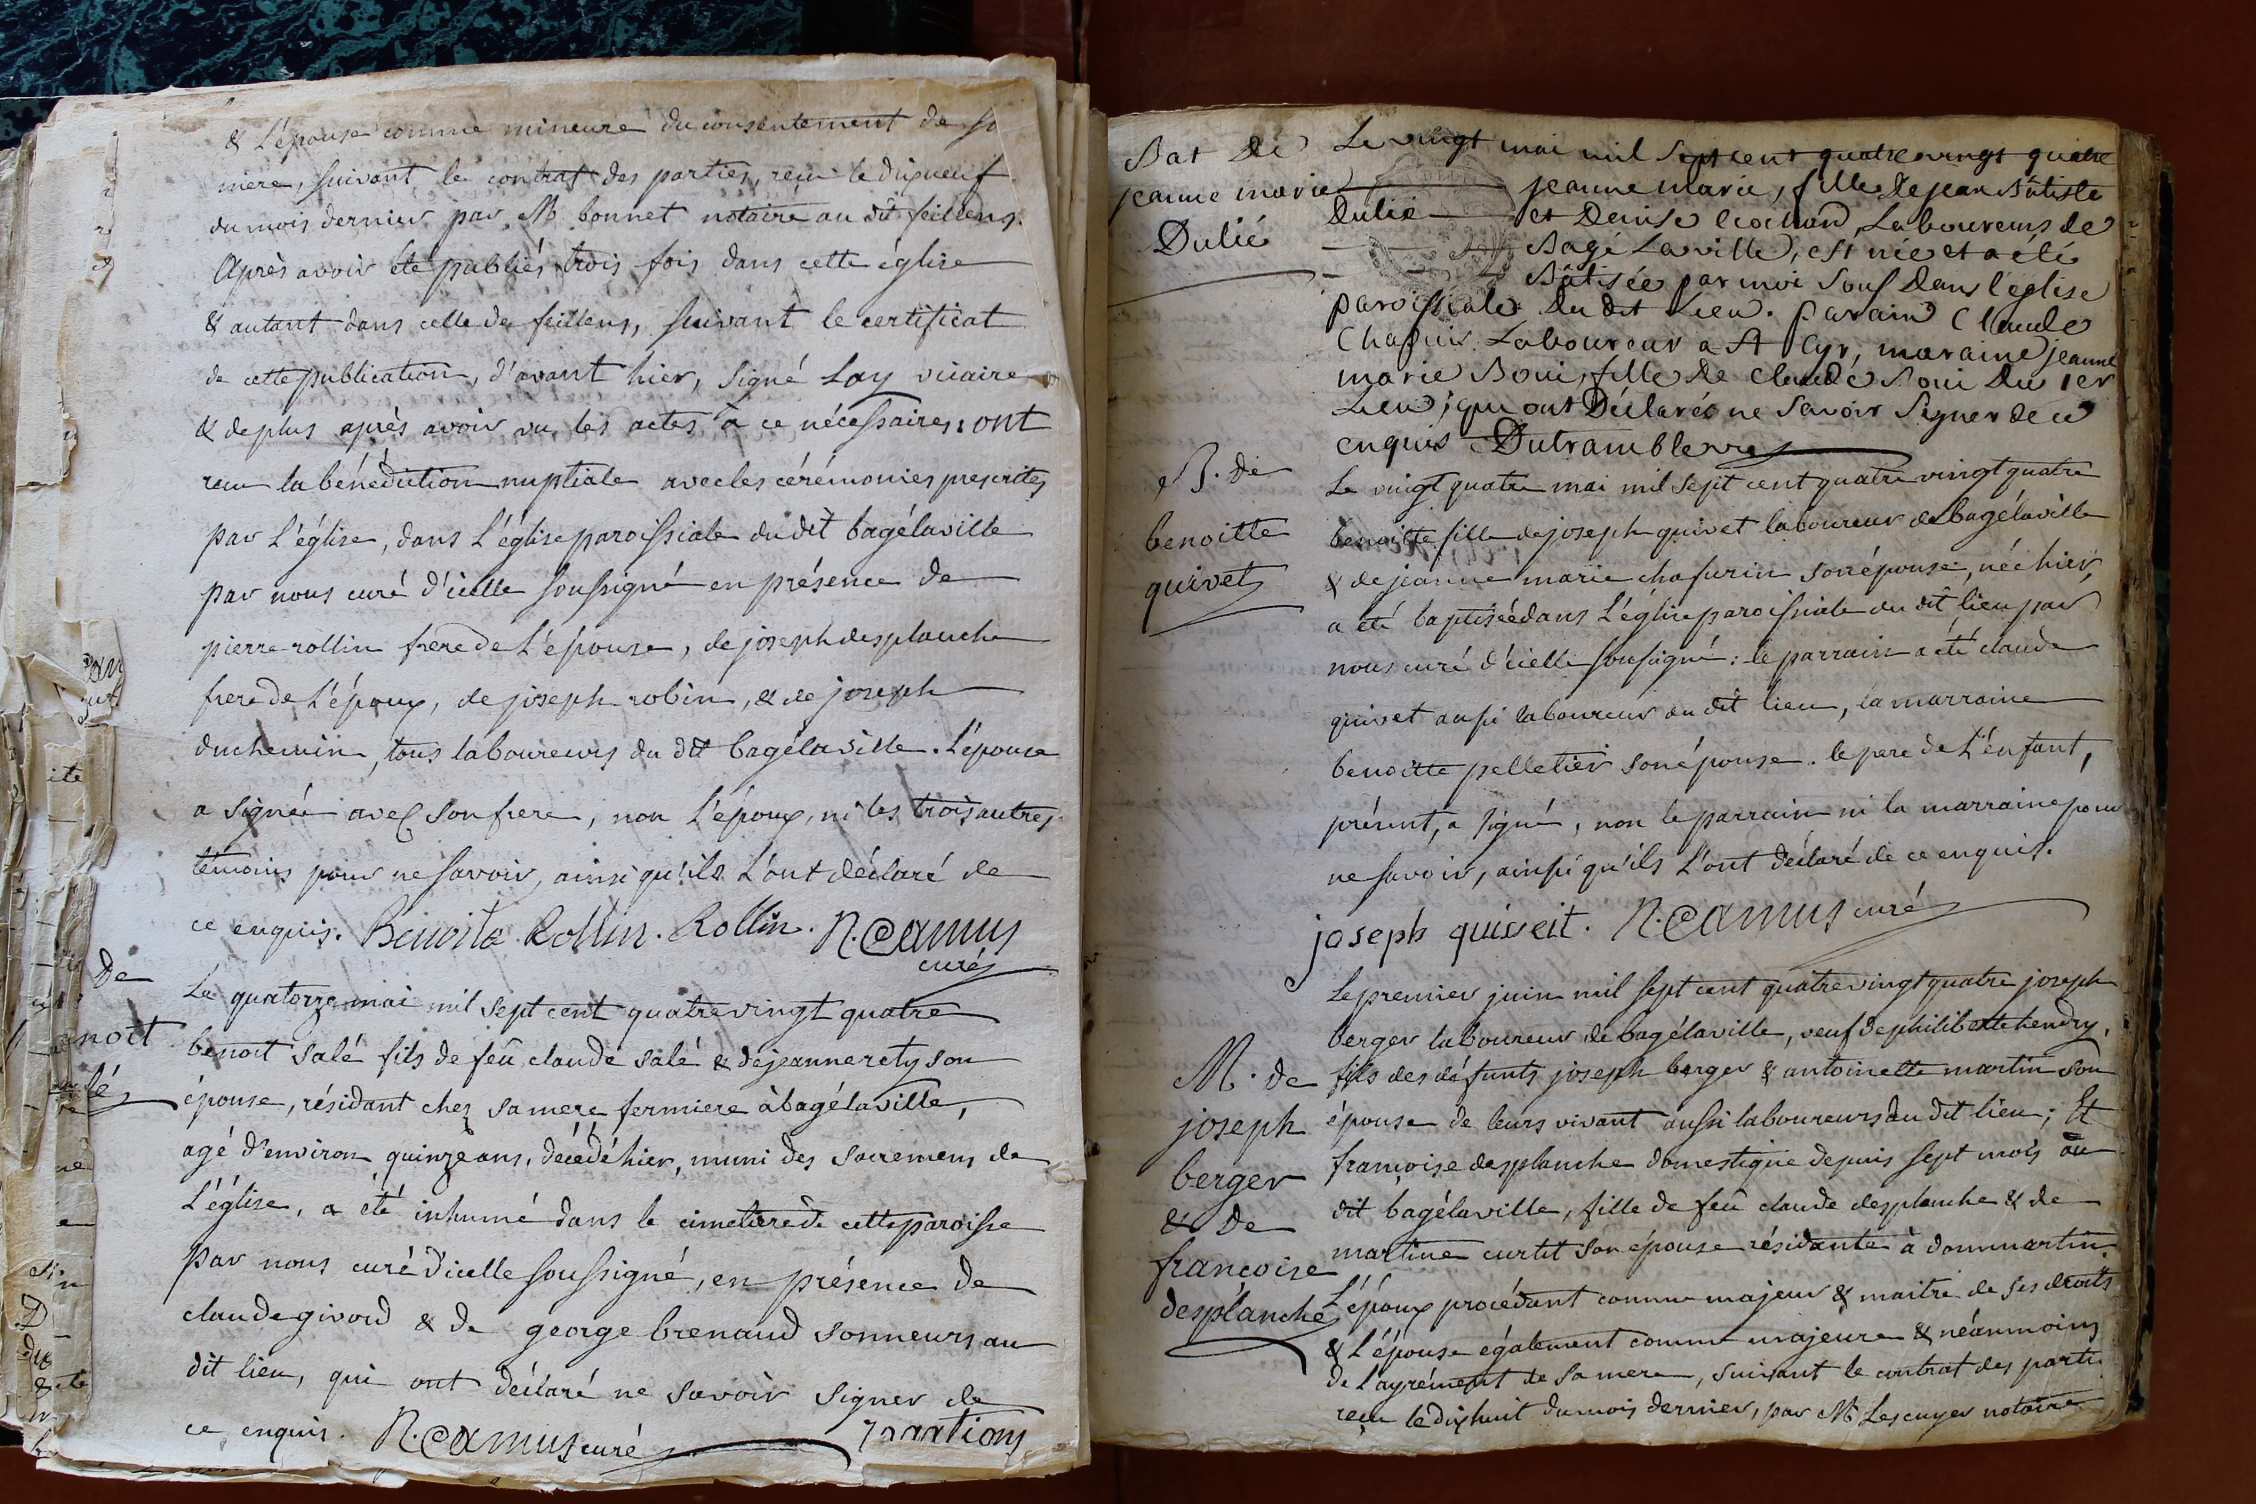 & L'épouse comme mineure du consentement de sa
mere, suivant le contrat des parties, reçu le dixneuf
du mois dernier par Me bonnet notaire au dit feillens.
Après avoir été publiés trois fois dans cette église
& autant dans celle de feillens, suivant le certificat
de cette publication, d'avant hier, signé Lay vicaire
& de plus après avoir vu les actes à ce nécessaires: ont
reçu la bénédiction nuptiale avec les cérémonies prescrites
par L'église, dans L'église paroissiale du dit bagélaville
par nous curé d'icelle soussigné en présence de
pierre rollin frere de L'épouse, de joseph desplanche
frere de L'époux, de joseph robin, & de joseph
duchemin, tous laboureurs du dit bagélaville. L'épouse
a signée avec son frere, non L'époux, ni les trois autres
témoins pour ne savoir, ainsi qu'ils L'ont déclaré de
ce enquis. Benoite Rollin. Rollin. N. Camus
curé
De
noit
lé
Le quatorze mai mil sept cent quatrevingt quatre
benoit salé fils de feû claude salé & de jeanne rety son
épouse, résidant chez sa mere fermiere à bagélaville,
agé d'environ quinze ans, décédé hier, muni des sacremens de
L'église, a été inhumé dans le cimetiere de cette paroisse
par nous curé d'icelle soussigné, en présence de
claude givord & de george brenaud sonneurs au
dit lieu, qui ont déclaré ne savoir signer de
ce enquis. N. Camus curé
Bat De
jeanne marie
Dulié
Le vingt mai mil sept cent quatre vingt quatre
jeanne marie, fille de jean Bâtiste
Dulié et Denise Cochard, Laboureurs de
Bagé Laville, est née et a été
Bâtisée par moi Sous Dans l'église
paroissiale Du dit Lieu. parain Claude
Chapuis Laboureur a St Cyr, maraine jeanne
marie Boui, fille de Claude Boui Du 1er
Lieu, qui ont Déclarés ne savoir signer de ce
enquis Dutramblevre
B. de
benoitte
quivet
Le vingt quatre mai mil sept cent quatre vingt quatre
benoitte fille de joseph quivet laboureur de bagélaville
& de jeanne marie chafurin son épouse, née hier,
a été baptisée dans L'église paroissiale du dit lieu par
nous curé d'icelle soussigné: le parrain a été claude
quivet aussi laboureur au dit lieu, la marraine
benoitte pelletier son épouse. le pere de L'enfant,
présent, a signé, non le parrain ni la marraine pour
ne savoir, ainsi qu'ils L'ont déclaré de ce enquis.
joseph quiveit. N. Camus curé
M. de
joseph
berger
& De
francoise
desplanche
Le premier juin mil sept cent quatrevingt quatre joseph
berger laboureur de bagélaville, veuf de philiberte hendry,
fils des défunts joseph berger & antoinette martin son
épouse de leurs vivant aussi laboureurs du dit lieu; Et
françoise desplanche domestique depuis sept mois au
dit bagélaville, fille de feû claude desplanche & de
martine curtit son épouse résidante à dommartin.
L'époux procédant comme majeur & maitre de ses droits
& L'épouse également comme majeure & néanmoins
de L'agrément de sa mere, suivant le contrat des parties
reçu le dixhuit du mois dernier, par Me Lescuyer notaire